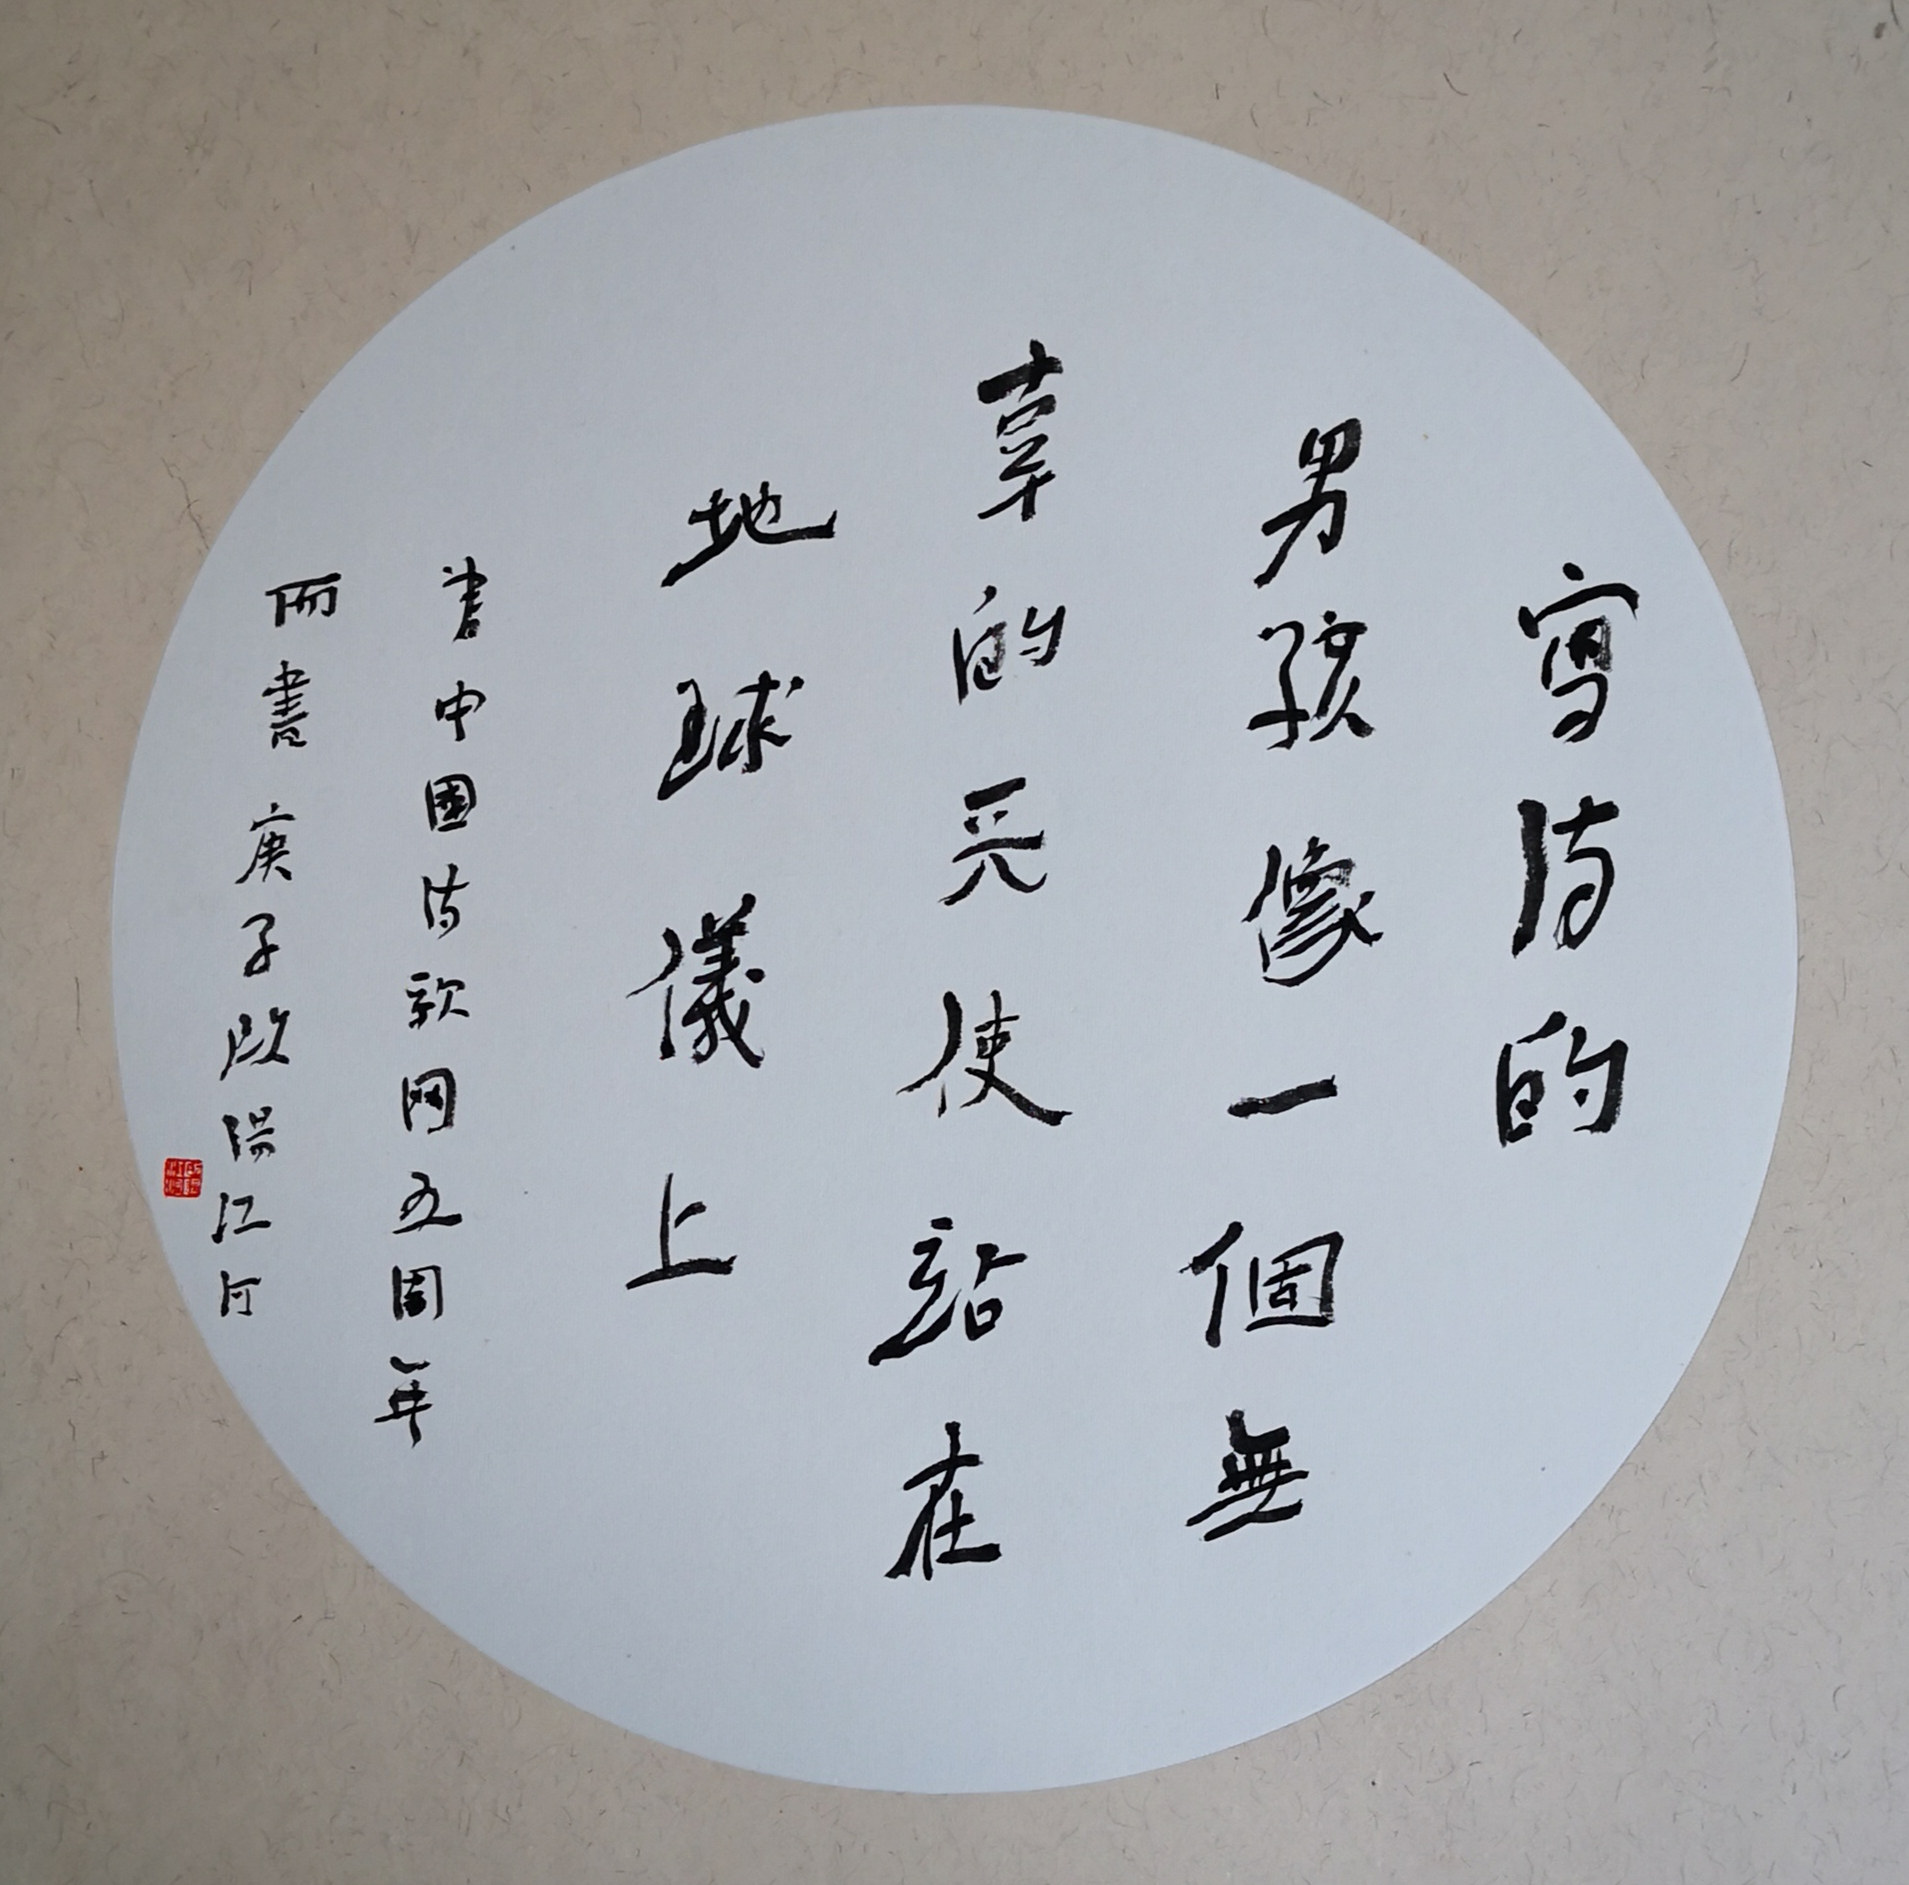 寫诗的
男孩像一個無
辜的天使站在
地球儀上
為中國诗歌网五周年
而書 庚子欧陽江河